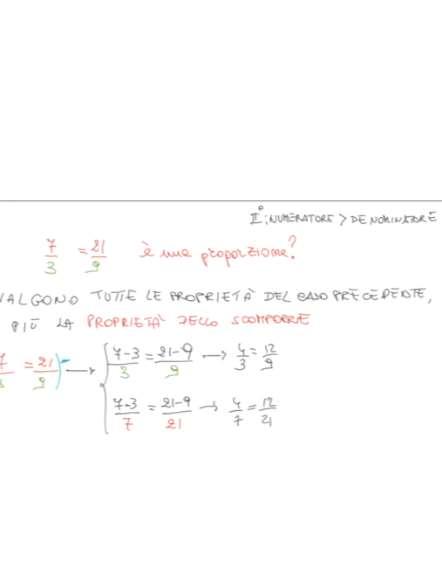 II°: NUMERATORE > DENOMINATORE
7/3 = 21/9 è una proporzione?
VALGONO TUTTE LE PROPRIETÀ DEL CASO PRECEDENTE,
PIÙ LA PROPRIETÀ DELLO SCOMPORRE
7/3 = 21/9) → { (7-3)/3 = (21-9)/9 → 4/3 = 12/9
(7-3)/7 = (21-9)/21 → 4/7 = 12/21